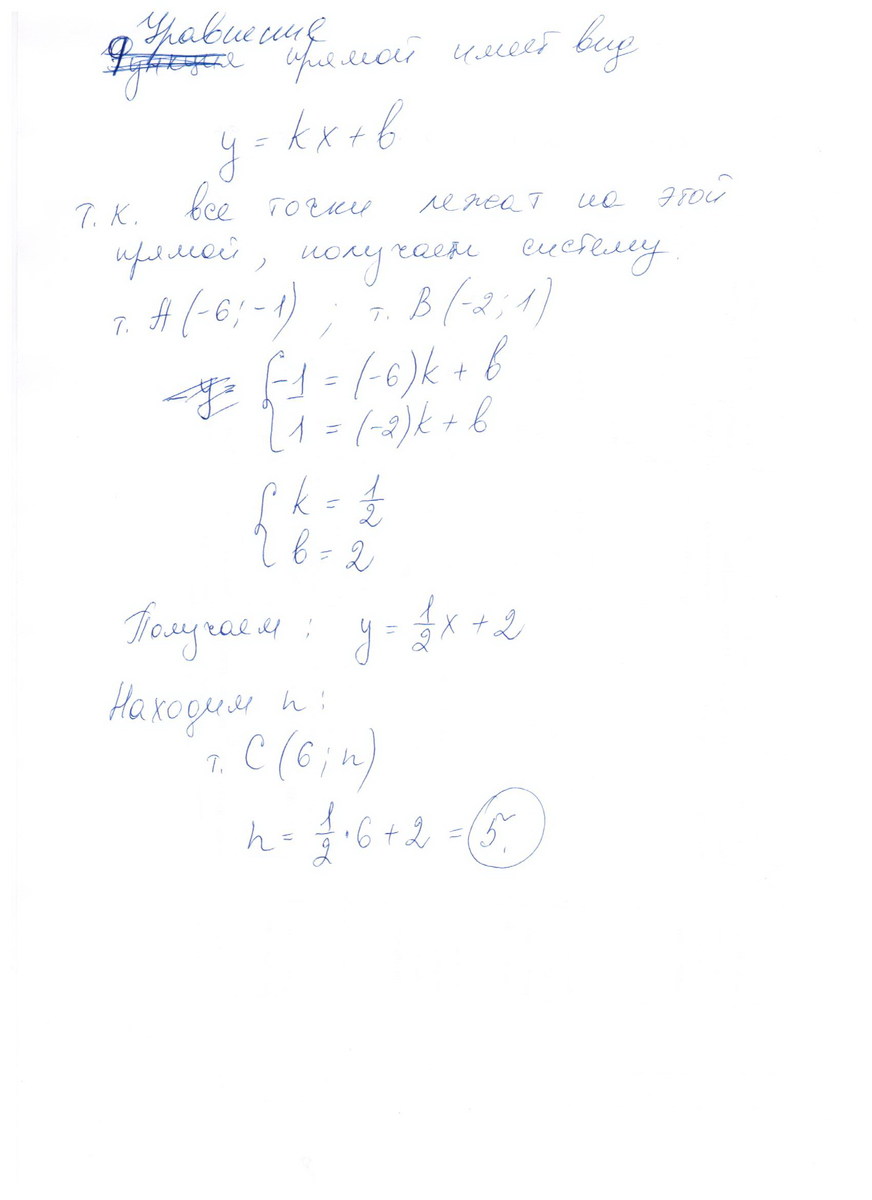 Уравнение
Функция прямой имеет вид
y = kx + b
т.к. все точки лежат на этой
прямой, получаем систему.
т. A (-6; -1) ; т. B (-2; 1)
y= { -1 = (-6)k + b
1 = (-2)k + b
{ k = 1/2
b = 2
Получаем : y = 1/2 x + 2
Находим n :
т. C (6; n)
n = 1/2 · 6 + 2 = 5.